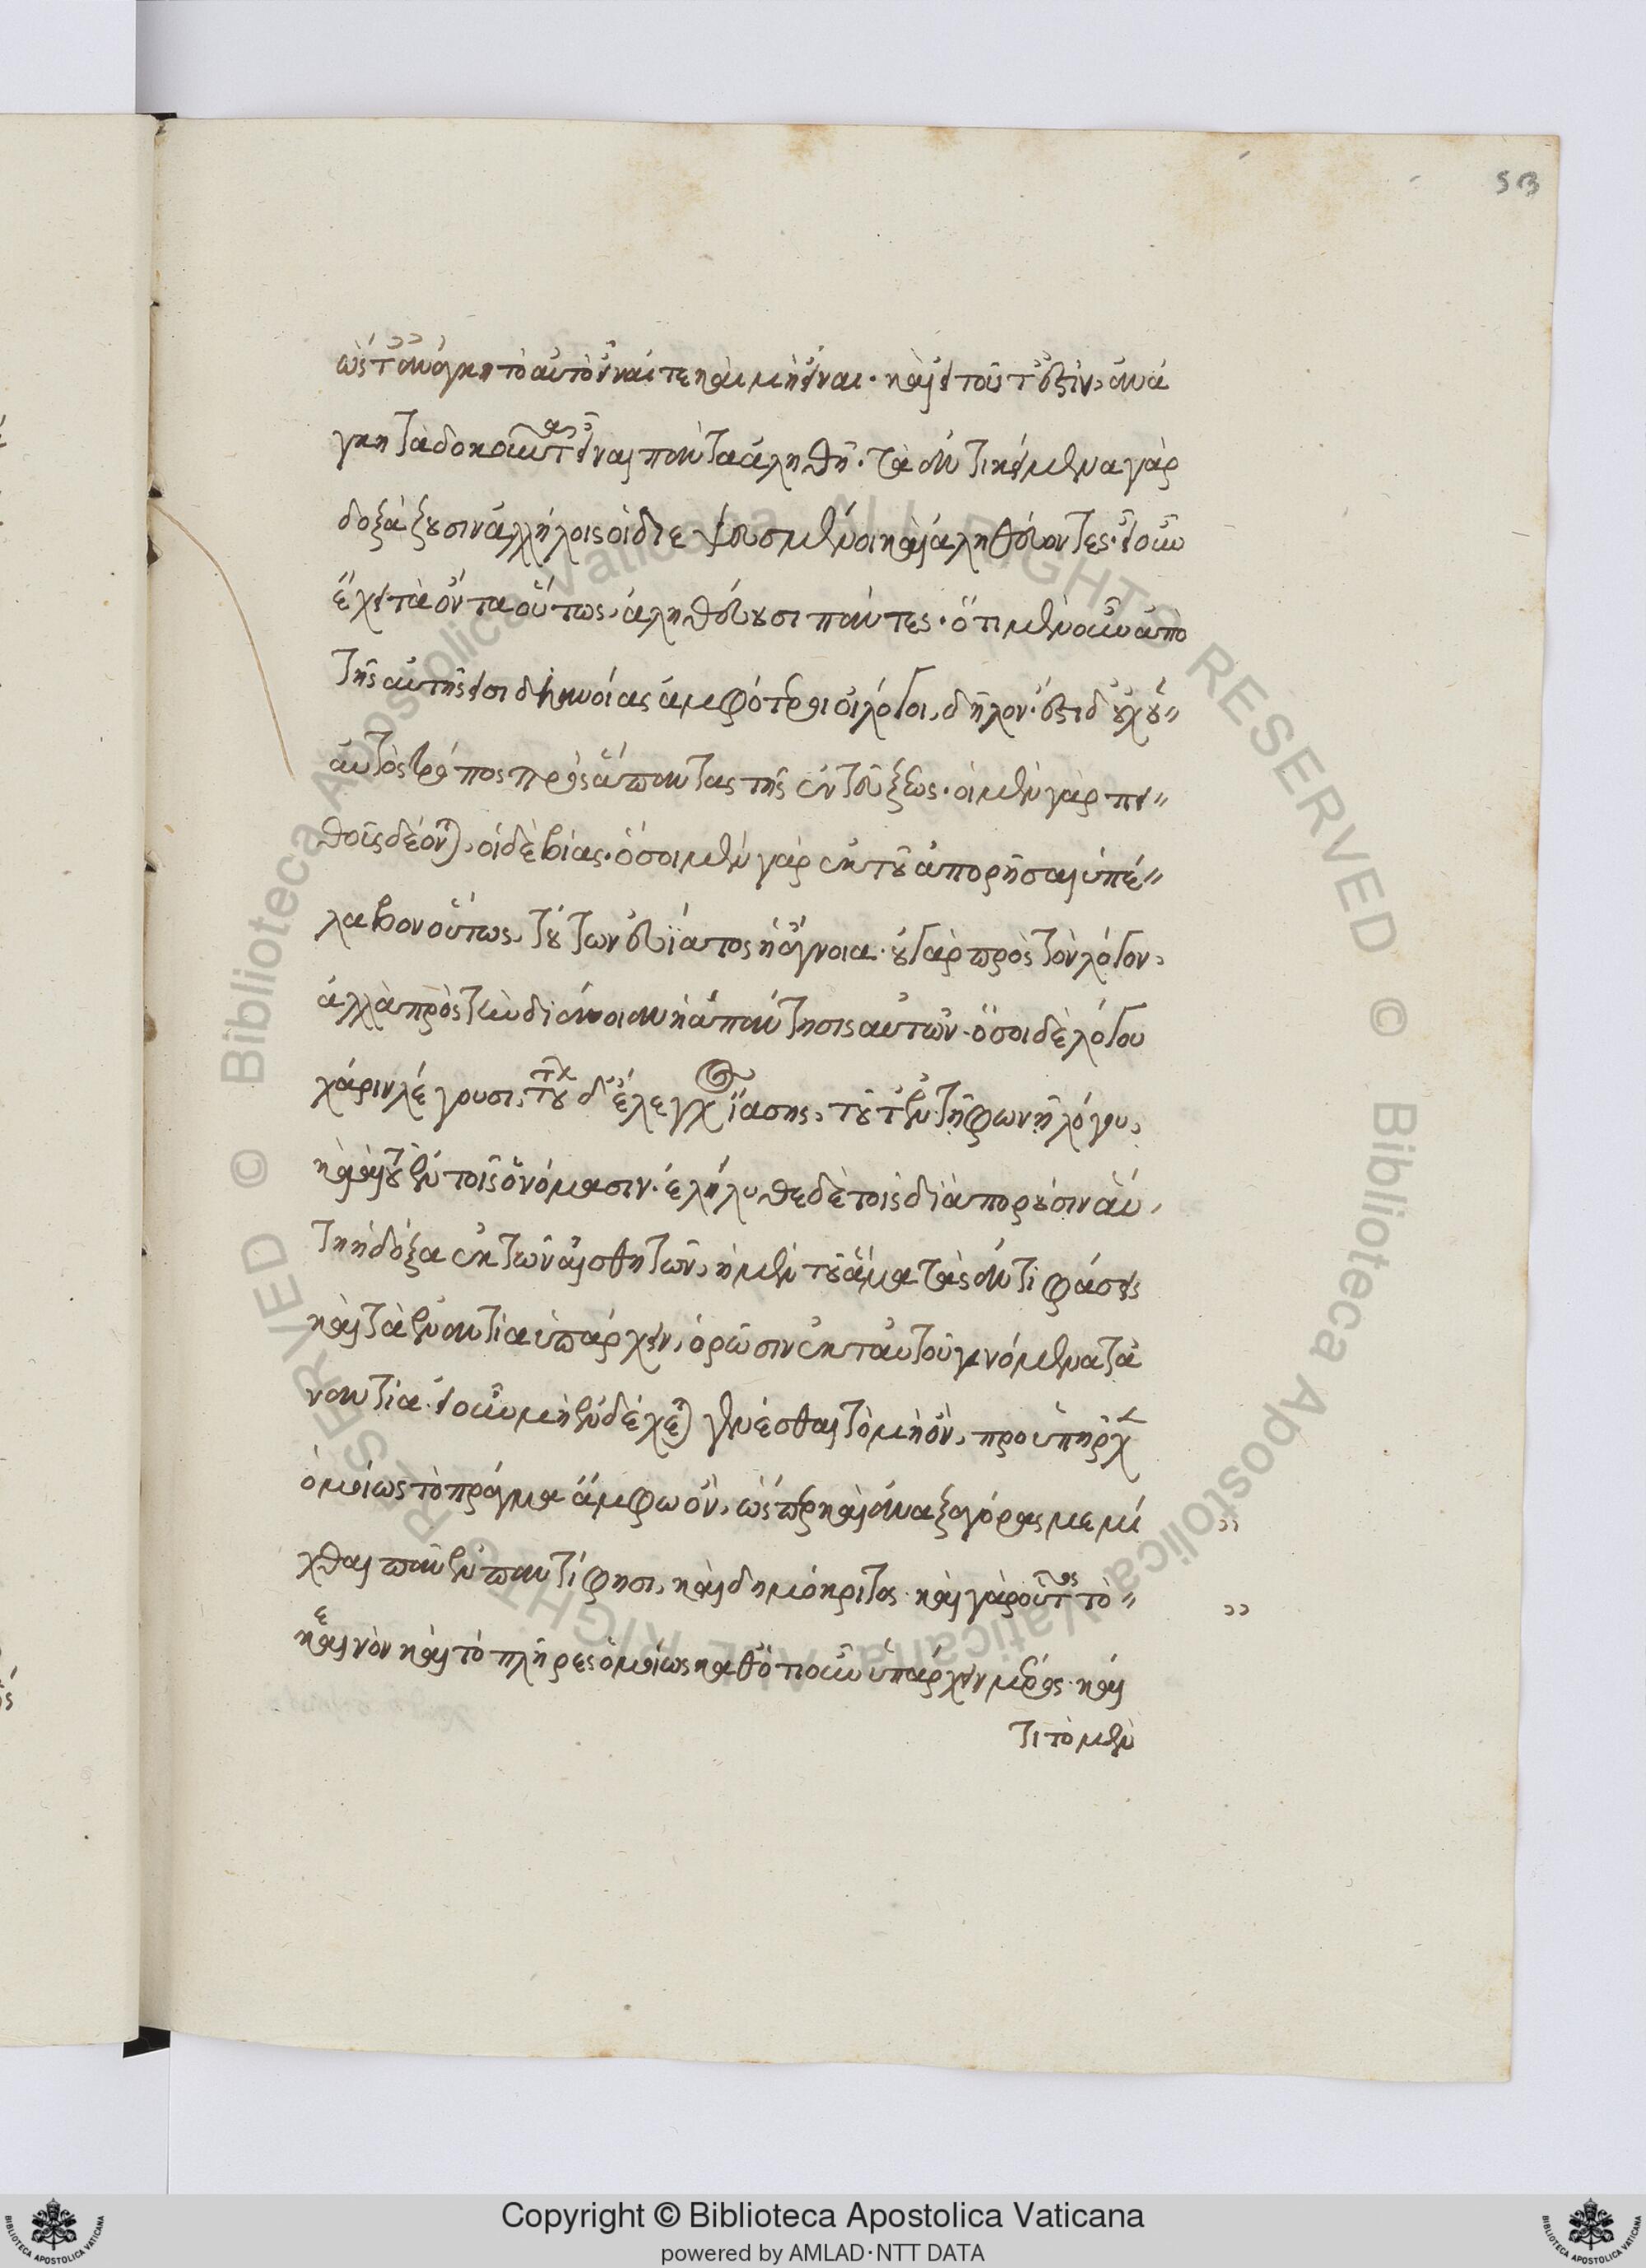 53
ὥστ' ἀνάγκη τὸ αὐτὸ εἶναί τε καὶ μὴ εἶναι· καὶ εἰ τοῦτ' ἐστὶν, ἀνά
γκη τὰ δοκοῦντα εἶναι πάντα ἀληθῆ· τὰ ἀντικείμενα γὰρ
δοξάζουσιν ἀλλήλοις οἱ διεψευσμένοι καὶ ἀληθεύοντες· εἰ οὖν
ἔχει τὰ ὄντα οὕτως, ἀληθεύουσι πάντες· ὅτι μὲν οὖν ἀπὸ
τῆς αὐτῆς εἰσὶ διανοίας ἀμφότεροι οἱ λόγοι, δῆλον· ἔστι δ' οὐχ ὁ
αὐτὸς τρόπος πρὸς ἅπαντας τῆς ἐντεύξεως· οἱ μὲν γὰρ πει
θοῦς δέονται, οἱ δὲ βίας· ὅσοι μὲν γὰρ ἐκ τοῦ ἀπορῆσαι ὑπέ
λαβον οὕτως, τούτων εὐΐατος ἡ ἄγνοια· οὐ γὰρ πρὸς τὸν λόγον,
ἀλλὰ πρὸς τὴν διάνοιαν ἡ ἀπάντησις αὐτῶν· ὅσοι δὲ λόγου
χάριν λέγουσι, τούτων δ' ἔλεγχος ἴασις, τοῦ τ' ἐν τῇ φωνῇ λόγου,
καὶ τοῦ ἐν τοῖς ὀνόμασιν· ἐλήλυθε δὲ τοῖς διαποροῦσιν αὕ
τη ἡ δόξα ἐκ τῶν αἰσθητῶν, ἡ μὲν τοῦ ἅμα τὰς ἀντιφάσεις
καὶ τὰ ἐναντία ὑπάρχειν, ὁρῶσιν ἐκ ταὐτοῦ γινόμενα τἀ
ναντία· εἰ οὖν μὴ ἐνδέχεται γενέσθαι τὸ μὴ ὄν, προϋπῆρχεν
ὁμοίως τὸ πρᾶγμα ἄμφω ὄν, ὥσπερ καὶ ἀναξαγόρας μεμί
χθαι πᾶν ἐν παντί φησι, καὶ δημόκριτος· καὶ γὰρ οὗτος τὸ
καινὸν καὶ τὸ πλῆρες ὁμοίως καθ' ὁτιοῦν ὑπάρχειν μέρος· καί
τι τὸ μὲν
Copyright © Biblioteca Apostolica Vaticana
powered by AMLAD·NTT DATA